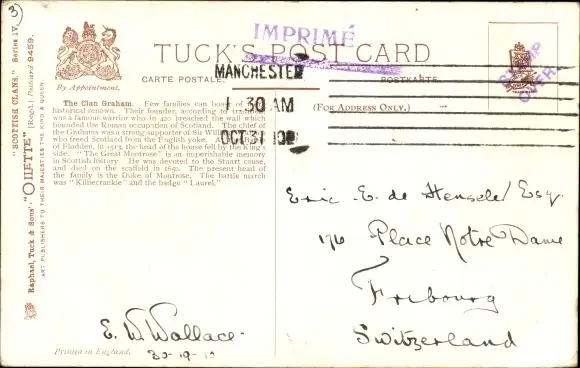 3)
IMPRIMÉ
TUCK'S POST CARD
CARTE POSTALE. POSTKARTE.
By Appointment.
MANCHESTER
1 30 AM
OCT 31
(FOR ADDRESS ONLY.)
STAMP
OVER
The Clan Graham. Few families can boast of
historical renown. Their founder, according to tradition
was a famous warrior who in 420 breached the wall which
bounded the Roman occupation of Scotland. The chief of
the Grahams was a strong supporter of Sir William
who freed Scotland from the English yoke. At
of Flodden, in 1513, the head of the house fell by the King's
side. "The Great Montrose" is an imperishable memory
in Scottish history. He was devoted to the Stuart cause,
and died on the scaffold in 1650. The present head of
the family is the Duke of Montrose. The battle march
was "Killiecrankie" and the badge "Laurel."
"SCOTTISH CLANS." Series IV.
"OILETTE" [Regd.] Postcard 9459.
Raphael Tuck & Sons'
ART PUBLISHERS TO THEIR MAJESTIES THE KING & QUEEN.
Eric E. de Henseler Esq.
176 Place Notre Dame
Fribourg
Switzerland
E. W. Wallace
30-10-10
Printed in England.